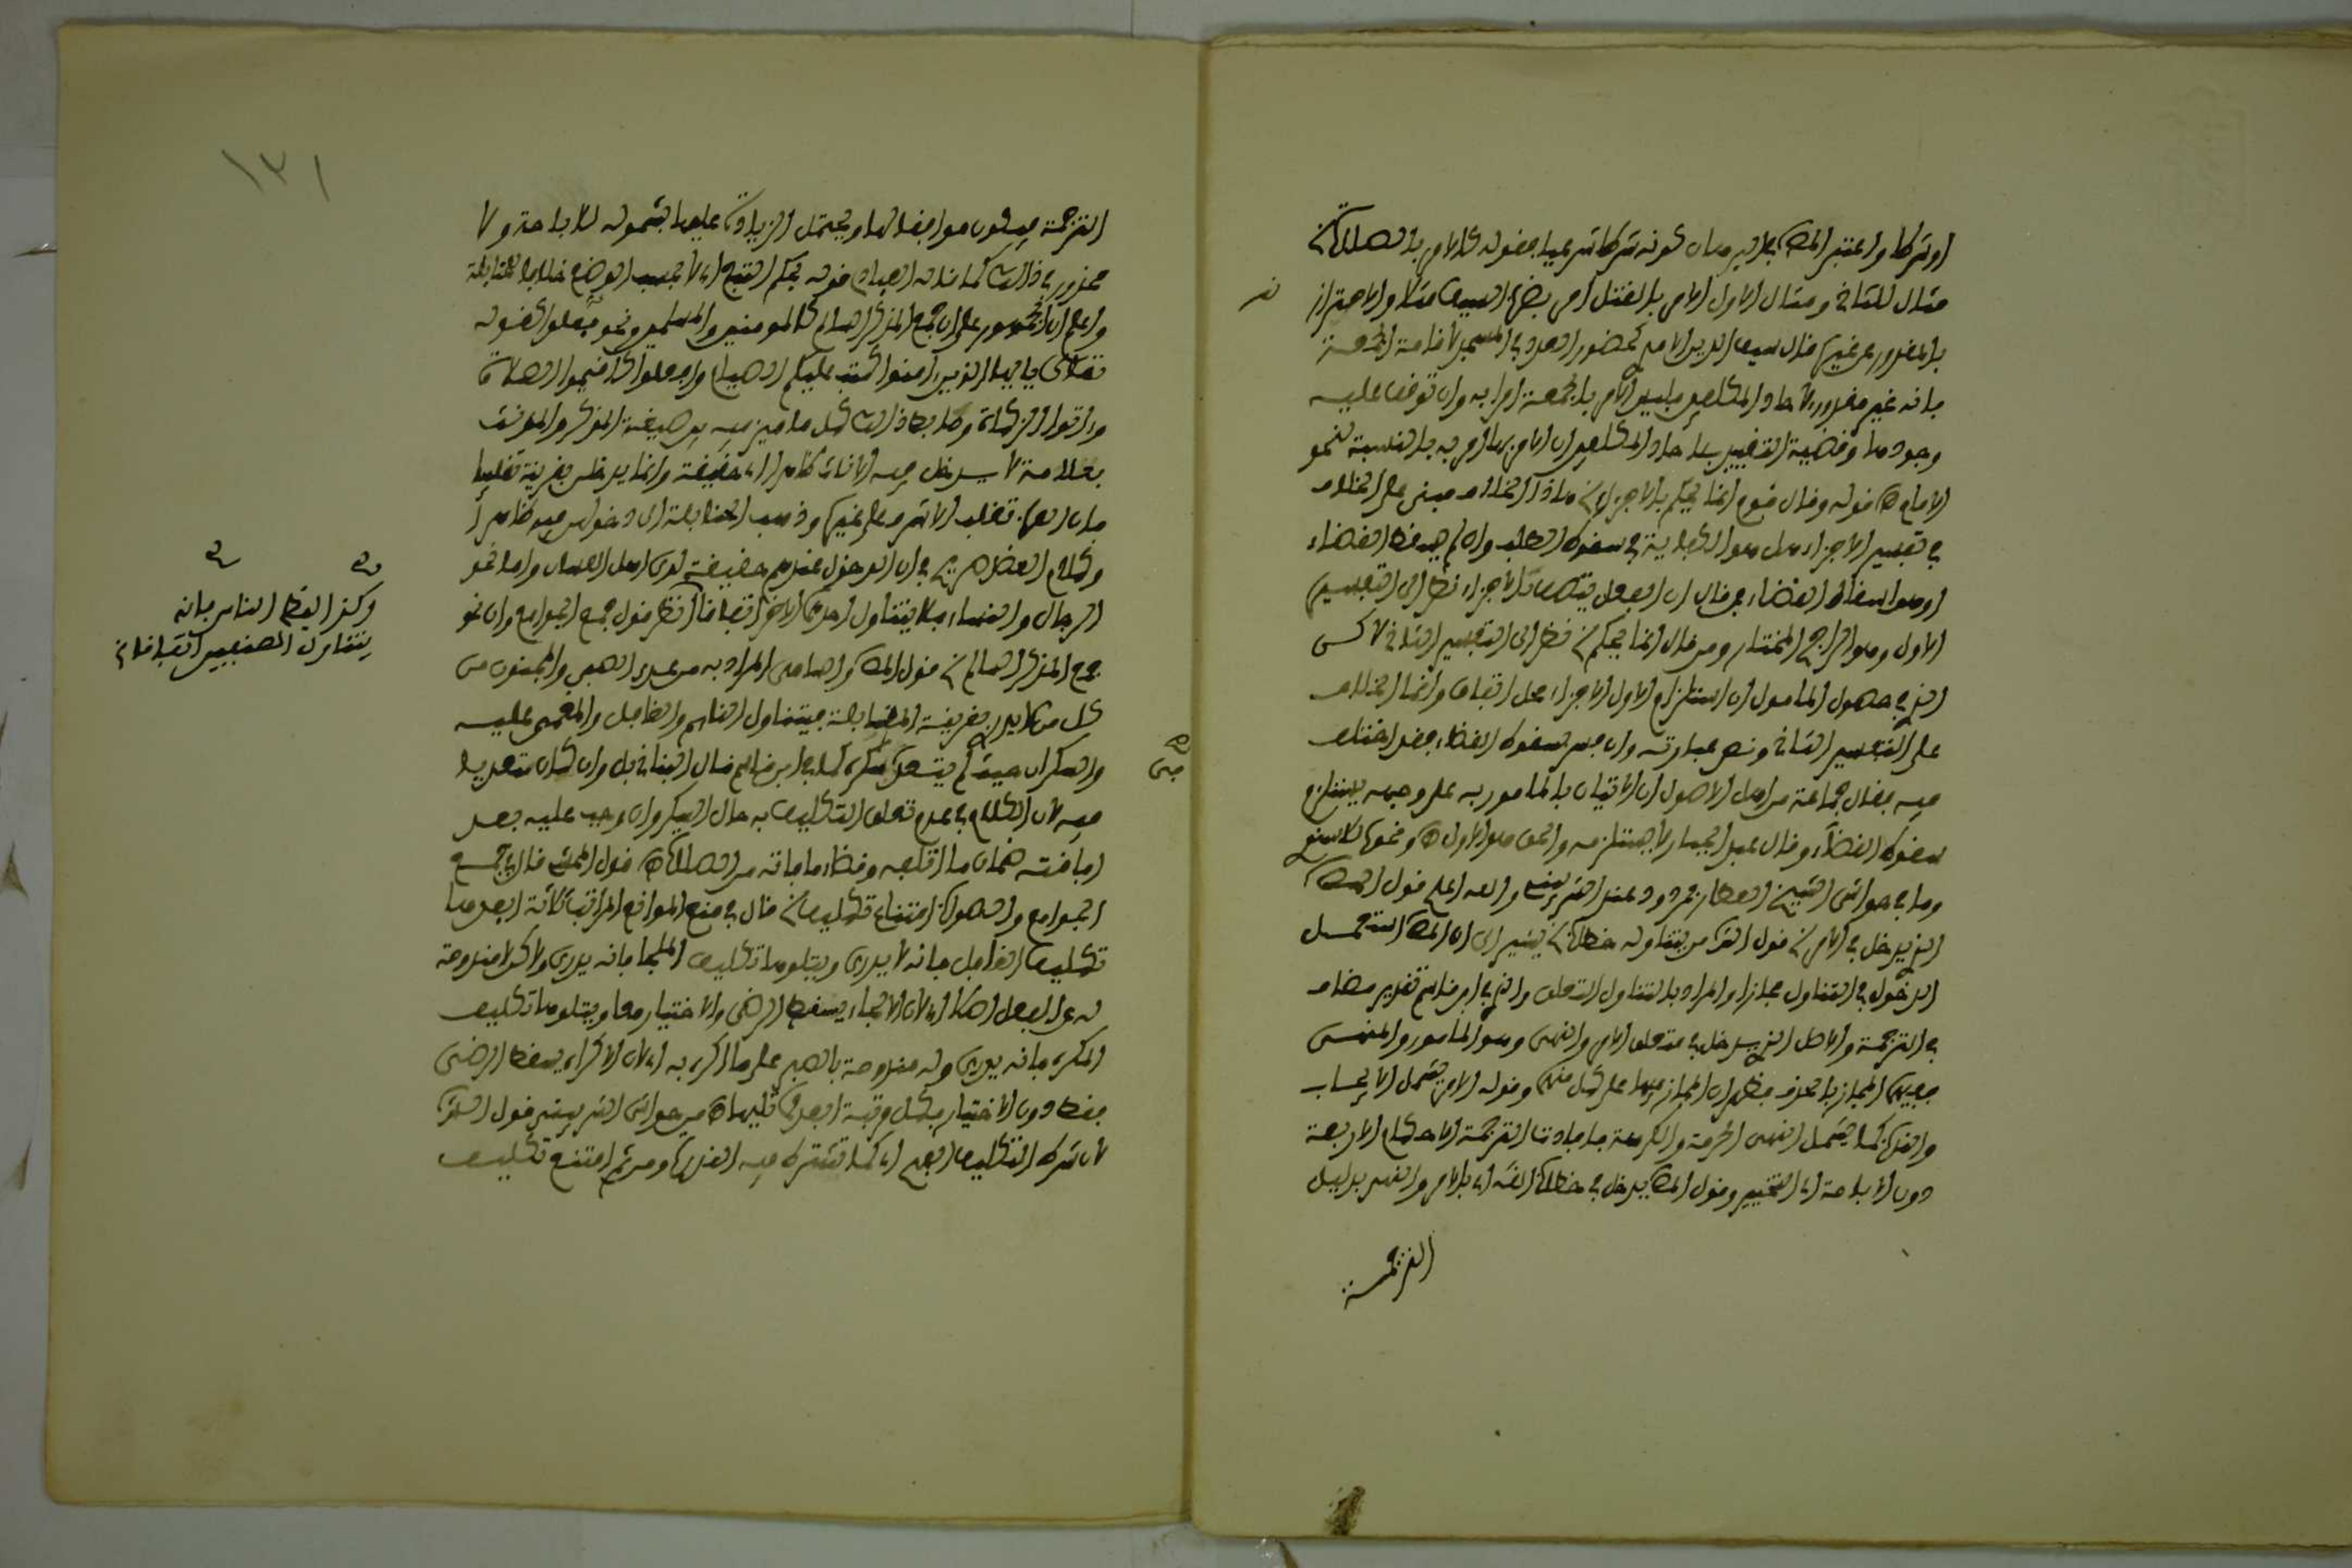 او شركا واعتبر المص بطاهر مدان كونه شركا شرعيا بقوله كالامر بالصلاة الخ
مثال للثاني ومثال الاول الامر بالقتل امر بضرب السيف مثلا والاحتراز
بالمقدور عن غيره قال سيف الدين الامدي كحضور العدد في المسجد لاقامة الجمعة
فانه غير مقدور لآحاد المكلفين فليس الامر بالجمعة امرا به وان توقف عليه
وجودها وقضية التقييد بآحاد المكلفين ان الامر بها امر به بالنسبة لنحو
الامام اه قوله وقال قوم انما يحكم بالاجزاء الخ هذا الخلاف مبني على الخلاف
في تفسير الاجزاء هل هو الكفاية في سقوط الطلب وان لم يسقط القضاء
او هو اسقاط القضاء فمن قال ان الفعل يتصف بالاجزاء نظر الى التفسير
الاول وهو الراجح المختار ومن قال انما يحكم الخ نظر الى التفسير الثاني لاكن
الذي في حصول المامول ان استلزام الاول الاجزاء محل اتفاق وانما الخلاف
على التفسير الثاني ونص عبارته وان فسر بسقوط القضاء فقد اختلف
فيه فقال جماعة من اهل الاصول ان الاتيان بالمامور به على وجهه يستلزم
سقوط القضاء وقال عبد الجبار لا يستلزمه والحق هو الاول اه ونحوه للاسنوي
وما في حواشي الشيخ العطار مردود عند الشربيني والله اعلم قول المص
الذي يدخل في الامر الخ قول الش من يتناوله خطاب الخ يشير الى ان المص استعمل
الدخول في التناول مجازا والمراد بالتناول التعلق والذي في ابن قاسم تقدير مضاف
في الترجمة والاصل الذي يدخل في متعلق الامر والنهي وهو المامور والمنهي
ففيه المجاز بالحذف فظهر ان المجاز فيها على كل منهما وقوله الامر يشمل الايجاب
والندب كما يشمل النهي الحرمة والكراهة فافادت الترجمة الاحكام الاربعة
دون الاباحة اي التخيير وقول المص يدخل في خطاب الله اي بالامر والنهي بدليل
الترجمة
١٣١
الترجمة فيكون موافقا لها ويحتمل الزيادة عليها بشموله للاباحة ولا
محذور في ذالك كما قاله العبادي قوله بحكم التبع اي لا بحسب الوضع خلافا للحنابلة
واعلم ان الجمهور على ان جمع المذكر السالم كالمومنين والمسلمين ونحو فعلوا كقوله
تعالى يا ايها الذين ءامنوا كتب عليكم الصيام وافعلوا كاقيموا الصلاة
وءاتوا الزكاة وضابط ذالك كل ما ميز فيه بين صيغة المذكر والمونث
بعلامة لا يدخل فيه الاناث ظاهرا اي حقيقة وانما يدخلن بقرينة تغليبا
فان العرب تغلب الاشرف على غيره وذهب الحنابلة الى دخولهن فيه ظاهرا
وكلام العضد صريح في ان الدخول عندهم حقيقة لدى اهل اللسان واما نحو
الرجال والنساء فلا يتناول احدهما الاخر اتفاقا انظر قول جمع الجوامع وان نحو
جمع المذكر السالم الخ قول المص والصبي المراد به من عدى الصبي والمجنون من
كل من لا يدري بقرينة المقابلة فيتناول النائم والغافل والمغمى عليه
والسكران حيث لم يتعد بسكره كما في ابن قاسم قال البناني بل وان كان متعديا
فيه لان الكلام في عدم تعلق التكليف به حال السكر وان وجب عليه بعد
افاقته ضمان ما اتلفه وقضاء ما فاته من الصلاة اه قول المص قال في جمع
الجوامع والصواب امتناع تكليف الخ قال في منع الموانع المراتب ثلاثة ابعدها
تكليف الغافل فانه لا يدري ويتلوها تكليف الملجا فانه يدري ولاكن لا مندوحة
له عن الفعل اصلا اي لان الالجاء يسقط الرضى والاختيار معا ويتلوها تكليف
المكره فانه يدري وله مندوحة بالصبر على ما اكره به اي لان الاكراه يسقط الرضى
فقط دون الاختيار فكل مرتبة ابعد مما تليها اه من حواشي الشربيني قول الش
لان شرط التكليف الفهم اي كما تشترط فيه القدرة ومن ثم امتنع تكليف
وكذا لفظ الناس فانه
يتناول الصنفين اتفاقا الخ